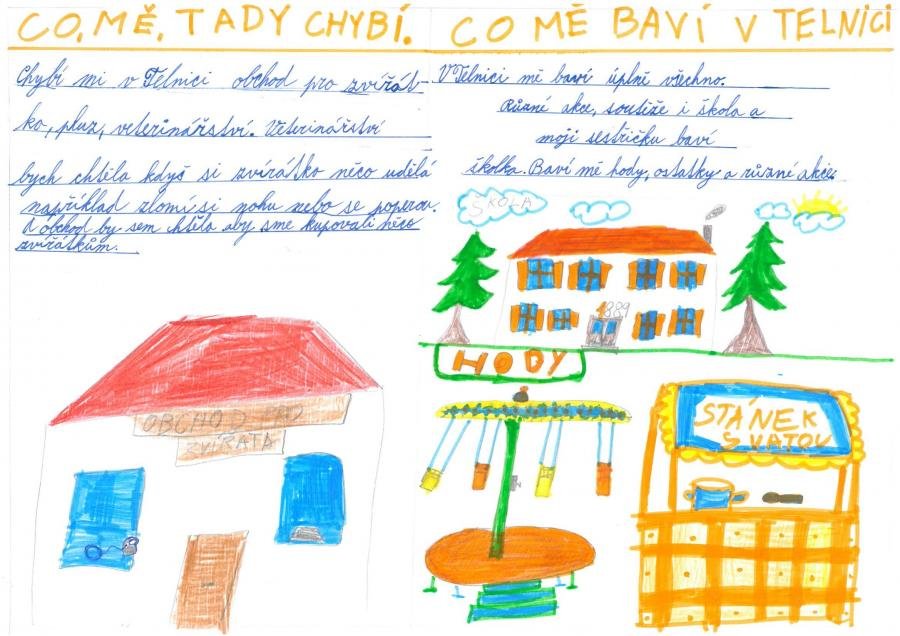 CO, MĚ, TADY CHYBÍ.
Chybí mi v Telnici obchod pro zvířát-
ko, pluz, veterinářství. Veterinářství
bych chtěla kdyš si zvírátko něco udělá
například zlomí si nohu nebo se popere.
A obchod by sem chtěla aby sme kupovali něco
zvířátkům.
OBCHOD
ZVÍŘATA
CO MĚ BAVÍ V TELNICI
V Telnici mě baví úplně všechno.
Různé akce, soutěže i škola a
moji sestřičku baví
školka. Baví mě hody, ostatky a různé akce.
ŠKOLA
1889
HODY
STÁNEK
S VATOU